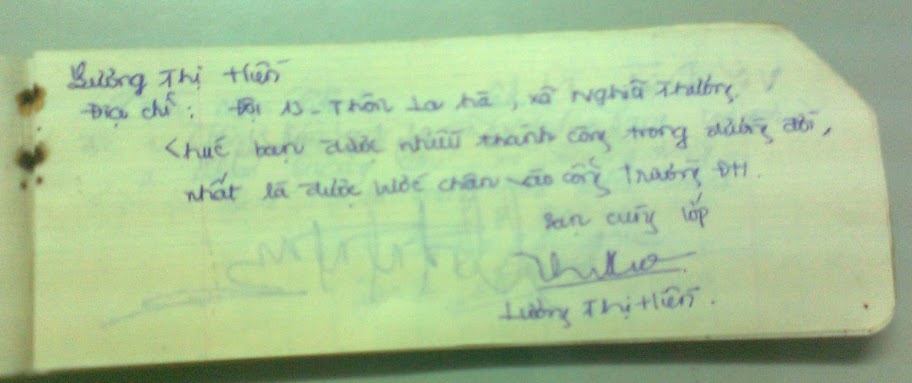 Lương Thị Hiền
Địa chỉ: Đội 13 - Thôn La hà, xã Nghĩa Thương
Chúc bạn được nhiều thành công trong đường đời,
nhất là được bước chân vào cổng Trường ĐH.
Bạn cùng lớp
Lương Thị Hiền.